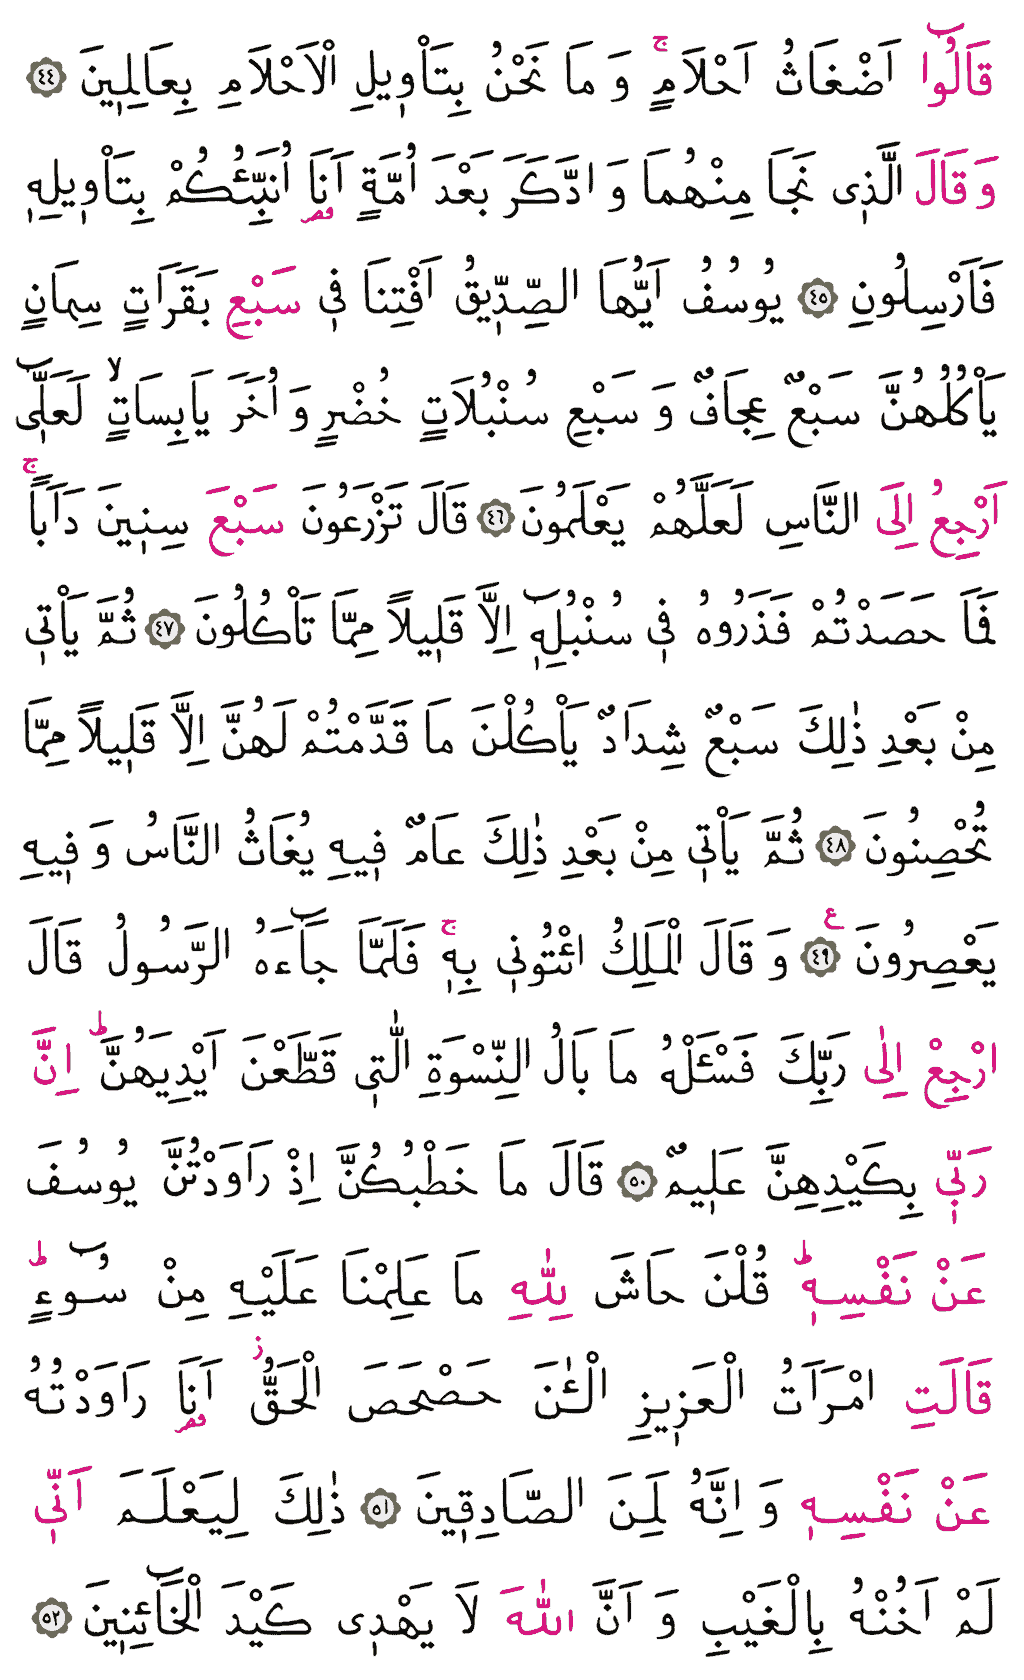 قَالُٓوا اَضْغَاثُ اَحْلَامٍۚ وَ مَا نَحْنُ بِتَاْو۪يلِ الْاَحْلَامِ بِعَالِم۪ينَ ﴿٤٤﴾
وَ قَالَ الَّذ۪ى نَجَا مِنْهُمَا وَ ادَّكَرَ بَعْدَ اُمَّةٍ اَنَا۬ اُنَبِّئُكُمْ بِتَاْو۪يلِه۪
فَاَرْسِلُونِ ﴿٤٥﴾ يُوسُفُ اَيُّهَا الصِّدّ۪يقُ اَفْتِنَا ف۪ى سَبْعِ بَقَرَاتٍ سِمَانٍ
يَاْكُلُهُنَّ سَبْعٌ عِجَافٌ وَ سَبْعِ سُنْبُلَاتٍ خُضْرٍ وَ اُخَرَ يَابِسَاتٍۙ لَعَلّ۪ٓى
اَرْجِعُ اِلَى النَّاسِ لَعَلَّهُمْ يَعْلَمُونَ ﴿٤٦﴾ قَالَ تَزْرَعُونَ سَبْعَ سِن۪ينَ دَاَبًاۚ
فَمَا حَصَدْتُمْ فَذَرُوهُ ف۪ى سُنْبُلِه۪ٓ اِلَّا قَل۪يلًا مِمَّا تَاْكُلُونَ ﴿٤٧﴾ ثُمَّ يَاْت۪ى
مِنْ بَعْدِ ذٰلِكَ سَبْعٌ شِدَادٌ يَاْكُلْنَ مَا قَدَّمْتُمْ لَهُنَّ اِلَّا قَل۪يلًا مِمَّا
تُحْصِنُونَ ﴿٤٨﴾ ثُمَّ يَاْت۪ى مِنْ بَعْدِ ذٰلِكَ عَامٌ ف۪يهِ يُغَاثُ النَّاسُ وَ ف۪يهِ
يَعْصِرُونَ ﴿٤٩﴾ ع وَ قَالَ الْمَلِكُ ائْتُون۪ى بِه۪ۚ فَلَمَّا جَٓاءَهُ الرَّسُولُ قَالَ
ارْجِعْ اِلٰى رَبِّكَ فَسْـَٔلْهُ مَا بَالُ النِّسْوَةِ الّٰت۪ى قَطَّعْنَ اَيْدِيَهُنَّؕ اِنَّ
رَبّ۪ى بِكَيْدِهِنَّ عَل۪يمٌ ﴿٥٠﴾ قَالَ مَا خَطْبُكُنَّ اِذْ رَاوَدْتُنَّ يُوسُفَ
عَنْ نَفْسِه۪ؕ قُلْنَ حَاشَ لِلّٰهِ مَا عَلِمْنَا عَلَيْهِ مِنْ سُٓوءٍؕ
قَالَتِ امْرَاَتُ الْعَز۪يزِ الْـٰٔنَ حَصْحَصَ الْحَقُّۘ اَنَا۬ رَاوَدْتُهُ
عَنْ نَفْسِه۪ وَ اِنَّهُ لَمِنَ الصَّادِق۪ينَ ﴿٥١﴾ ذٰلِكَ لِيَعْلَمَ اَنّ۪ى
لَمْ اَخُنْهُ بِالْغَيْبِ وَ اَنَّ اللّٰهَ لَا يَهْد۪ى كَيْدَ الْخَٓائِن۪ينَ ﴿٥٢﴾